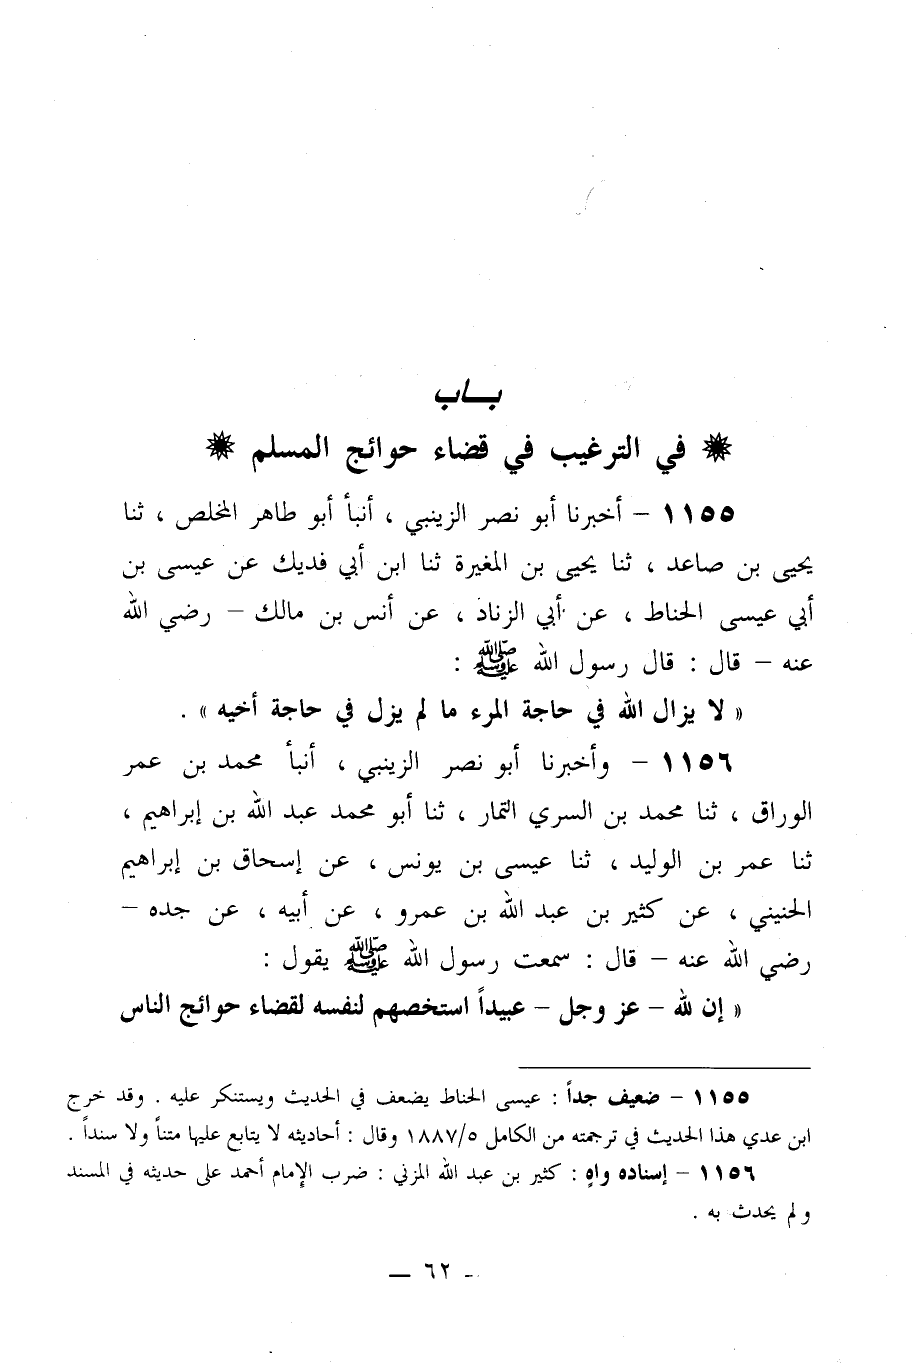 بـــاب
في الترغيب في قضاء حوائج المسلم
١١٥٥ – أخبرنا أبو نصر الزينبي ، أنبأ أبو طاهر المخلص ، ثنا
يحيى بن صاعد ، ثنا يحيى بن المغيرة ثنا ابن أبي فديك عن عيسى بن
أبي عيسى الحناط ، عن أبي الزناد ، عن أنس بن مالك – رضي الله
عنه – قال : قال رسول الله ﷺ :
« لا يزال الله في حاجة المرء ما لم يزل في حاجة أخيه » .
١١٥٦ – وأخبرنا أبو نصر الزينبي ، أنبأ محمد بن عمر
الوراق ، ثنا محمد بن السري التمار ، ثنا أبو محمد عبد الله بن إبراهيم ،
ثنا عمر بن الوليد ، ثنا عيسى بن يونس ، عن إسحاق بن إبراهيم
الحنيني ، عن كثير بن عبد الله بن عمرو ، عن أبيه ، عن جده –
رضي الله عنه – قال : سمعت رسول الله ﷺ يقول :
« إن لله – عز وجل – عبيداً استخصهم لنفسه لقضاء حوائج الناس
١١٥٥ – ضعيف جداً : عيسى الحناط يضعف في الحديث ويستنكر عليه . وقد خرج
ابن عدي هذا الحديث في ترجمته من الكامل ١٨٨٧/٥ وقال : أحاديثه لا يتابع عليها متناً ولا سنداً .
١١٥٦ – إسناده واهٍ : كثير بن عبد الله المزني : ضرب الإمام أحمد على حديثه في المسند
ولم يحدث به .
– ٦٢ –